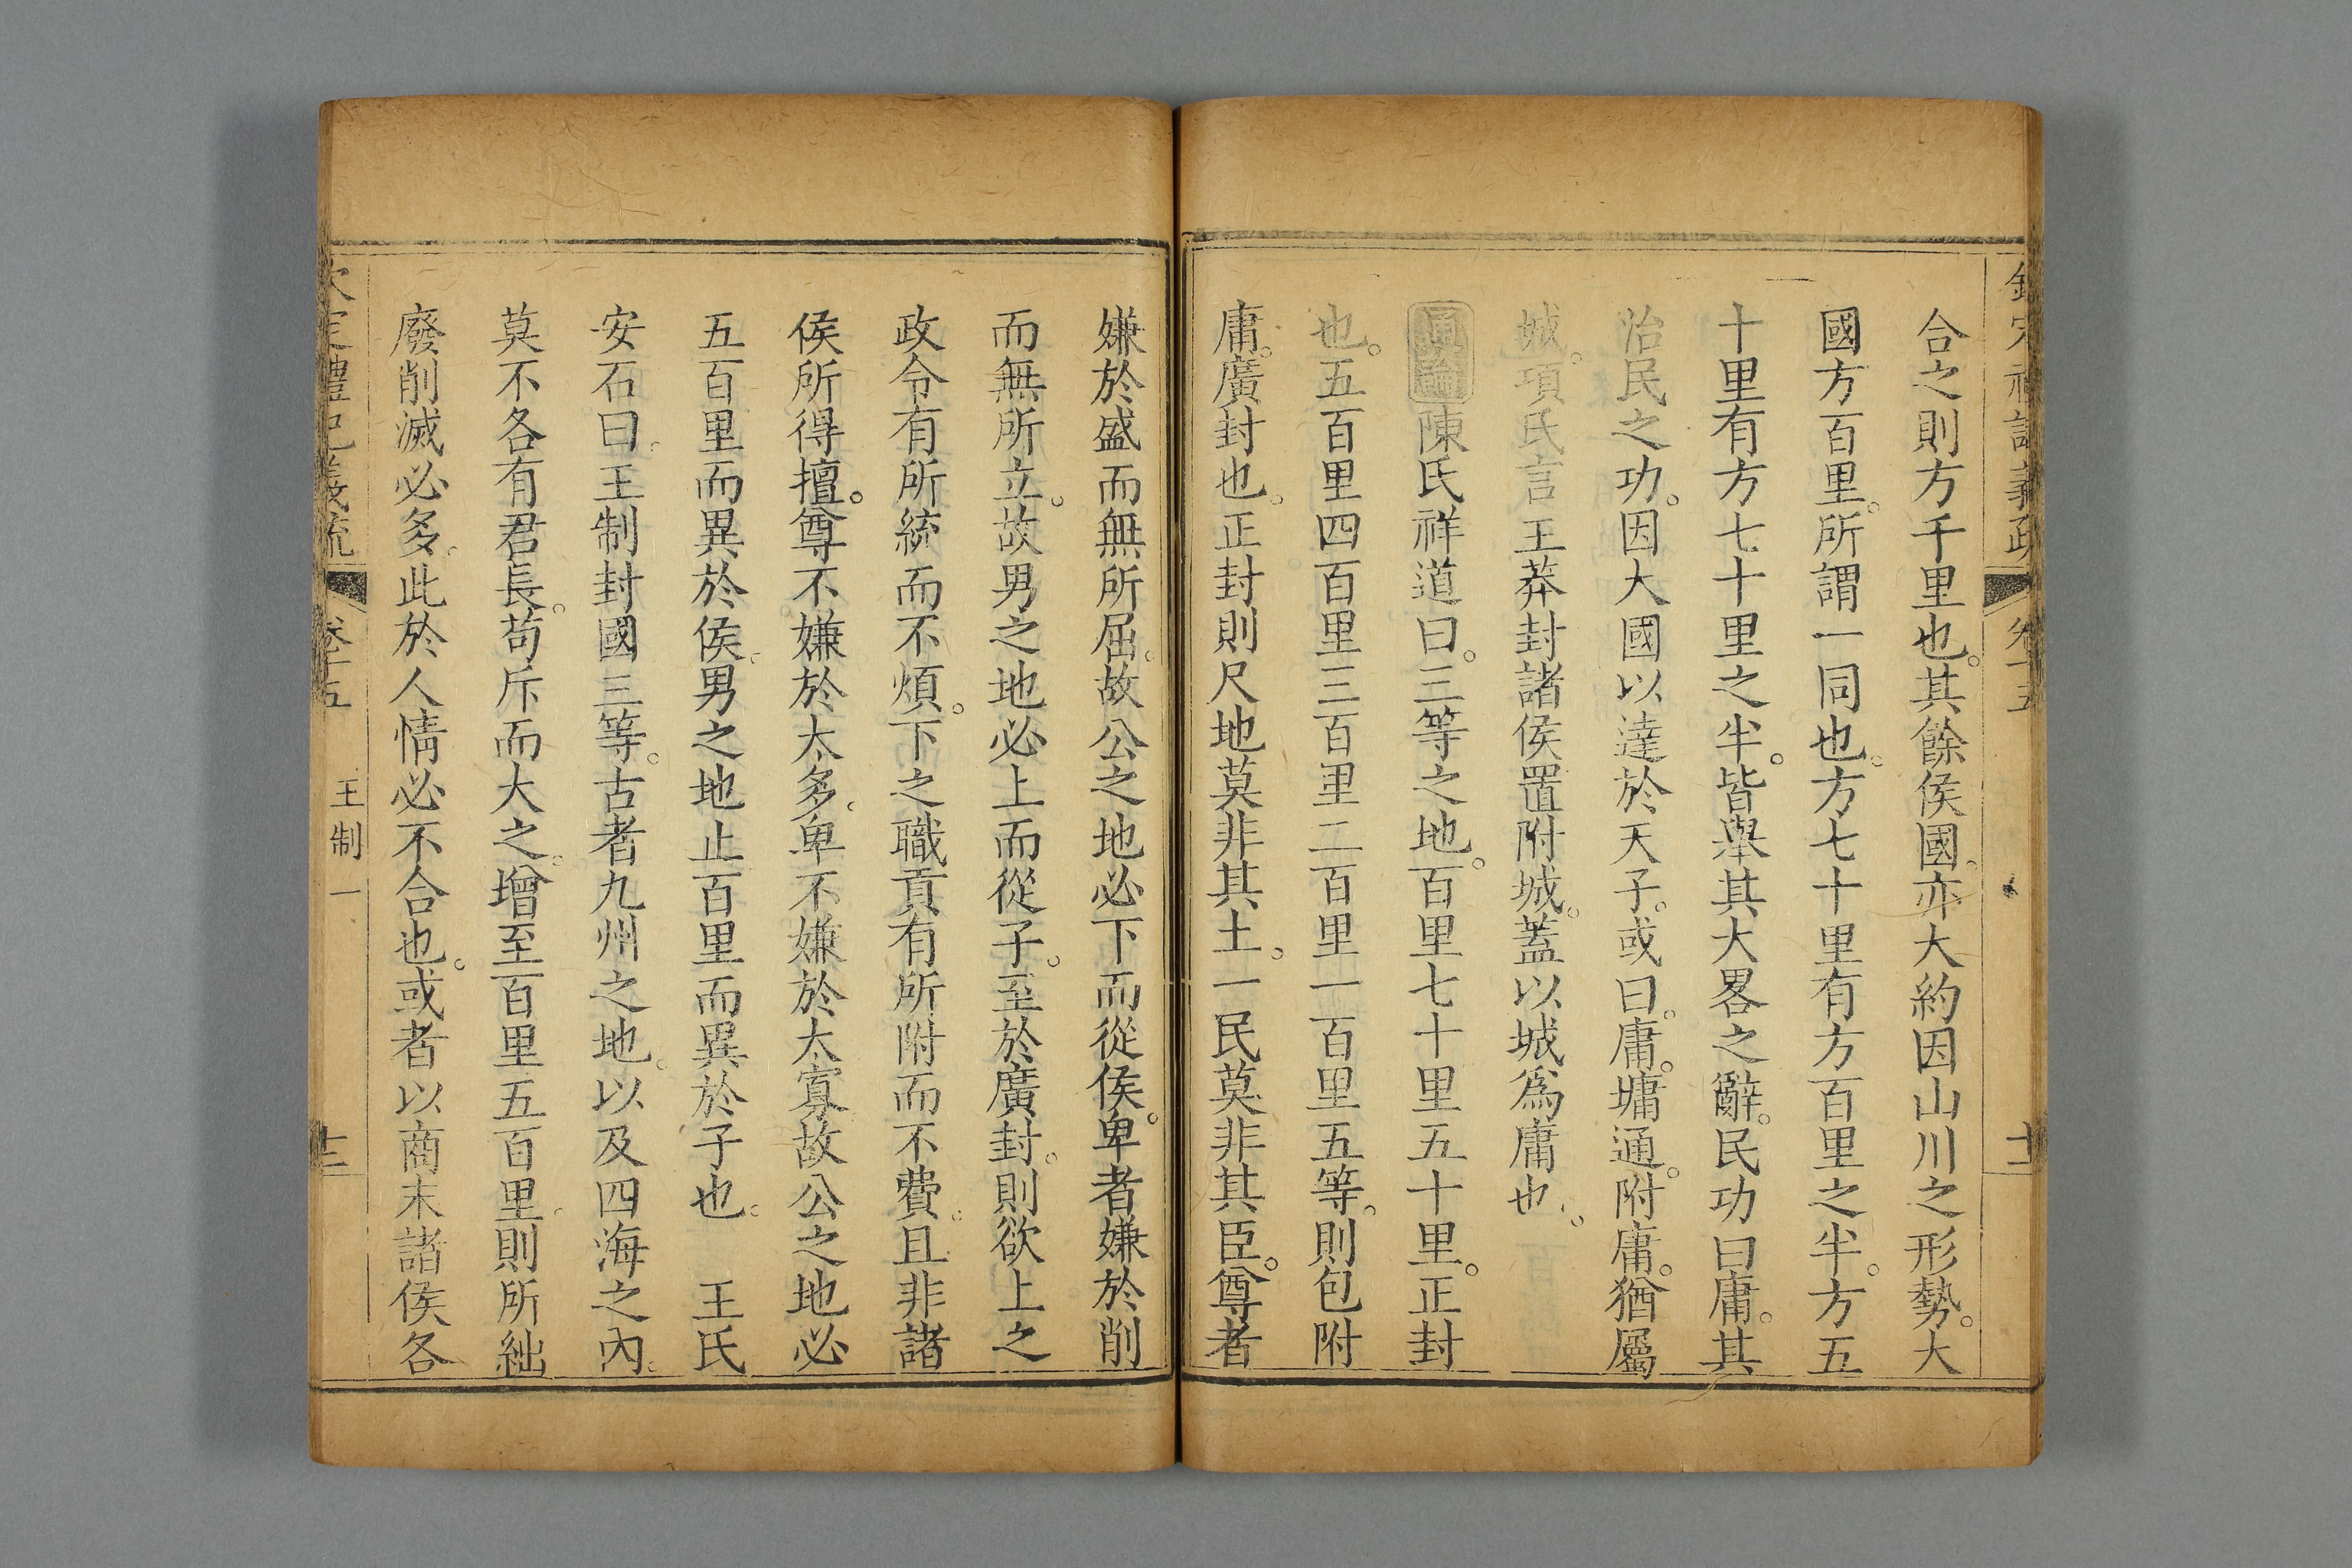 欽定禮記義疏 卷十五
合之則方千里也。其餘侯國。亦大約因山川之形勢。大
國方百里。所謂一同也。方七十里有方百里之半。方五
十里有方七十里之半。皆舉其大畧之辭。民功曰庸。其
治民之功。因大國以達於天子。或曰。庸。墉通。附庸。猶屬
城。項氏言王莽封諸侯置附城。蓋以城為庸也。
通論陳氏祥道曰。三等之地。百里七十里五十里。正封
也。五百里四百里三百里二百里一百里五等。則包附
庸。廣封也。正封則尺地莫非其土。一民莫非其臣。尊者
嫌於盛而無所屈。故公之地必下而從侯。卑者嫌於削
而無所立。故男之地必上而從子。至於廣封。則欲上之
政令有所統而不煩。下之職貢有所附而不費。且非諸
侯所得擅。尊不嫌於太多。卑不嫌於太寡故公之地必
五百里而異於侯。男之地止百里而異於子也。 王氏
安石曰。王制封國三等。古者九州之地。以及四海之內。
莫不各有君長。苟斥而大之。增至百里五百里。則所絀
廢削滅必多。此於人情必不合也。或者以商末諸侯各
欽定禮記義疏 卷十五 王制一 十二